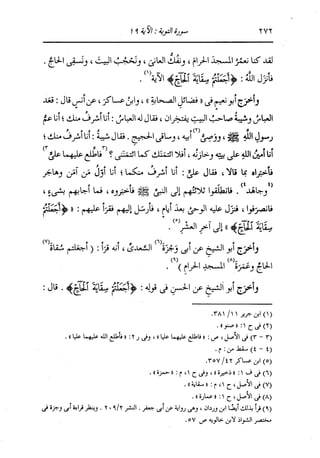 ٢٧٢ سورة التوبة : الآية ١٩
لقد كنا نعمُرُ المسجدَ الحرامَ ، ونفُكُّ العانىَ ، ونَحْجُبُ البيتَ ، ونسقِى الحاجَّ .
فأنزل اللهُ : ﴿ أَجَعَلْتُمْ سِقَايَةَ الْحَآجِّ ﴾ الآية(١) .
وأخرَج أبو نعيمٍ فى « فضائلِ الصحابةِ » ، وابنُ عساكرَ ، عن أنسٍ قال : قعَد
العباسُ وشيبةُ صاحبُ البيتِ يفتخِران ، فقال له العباسُ : أنا أشرفُ منك ؛ أنا عمُّ
رسولِ اللهِ ﷺ ، ووصِىُّ(٢) أبيه ، وساقى الحجيجِ . فقال شيبةُ : أنا أشرفُ منك ؛
أنا أمينُ اللهِ على بيتِه وخازنُه ، أفلا ائتمَنك كما ائتمَننى ؟ (٣فاطَّلع عليهما علىٌّ٣)
فأخبَراه بما قالا ، فقال علىٌّ : أنا أشرفُ منكما ؛ أنا أولُ مَن آمَن وهاجَر
(٤وجاهَد٤) . فانطلَقوا ثلاثتُهم إلى النبىِّ ﷺ فأخبَروه ، فما أجابَهم بشىءٍ ،
فانصرَفوا ، فنزَل عليه الوحىُ بعدَ أيامٍ ، فأرسَل إليهم فقرَأ عليهم : « ﴿ أَجَعَلْتُمْ
سِقَايَةَ الْحَآجِّ ﴾ » إلى آخرِ العشرِ(٥) .
وأخرَج أبو الشيخِ عن أبى وَجْزةَ(٦) السعدىِّ ، أنه قرَأ : ( أجعلتم سُقاةَ(٧)
الحاجِّ وعَمَرَةَ(٨) المسجدِ الحرامِ )(٩) .
وأخرَج أبو الشيخِ عن الحسنِ فى قولِه : ﴿ أَجَعَلْتُمْ سِقَايَةَ الْحَآجِّ ﴾ . قال :
(١) ابن جرير ١١/ ٣٨١.
(٢) فى ح ١: « صنو » .
(٣ - ٣) فى الأصل ، ص : « فاطلع عليهما عليا » ، وفى ر ٢: « فأطلع الله عليهما عليا » .
(٤ - ٤) سقط من : م .
(٥) ابن عساكر ٤٢/ ٣٥٧.
(٦) فى ف ١: « ذخيرة » ، وفى ح ١، م : « حمزة » .
(٧) فى الأصل ، ح ١، م : « سقاية » .
(٨) فى الأصل ، ح ١: « عمارة » .
(٩) قرأ بذلك أيضًا ابن وردان ، وهى رواية عن أبى جعفر . النشر ٢/ ٢٠٩. وينظر قراءة أبى وجزة فى
مختصر الشواذ لابن خالويه ص ٥٧.